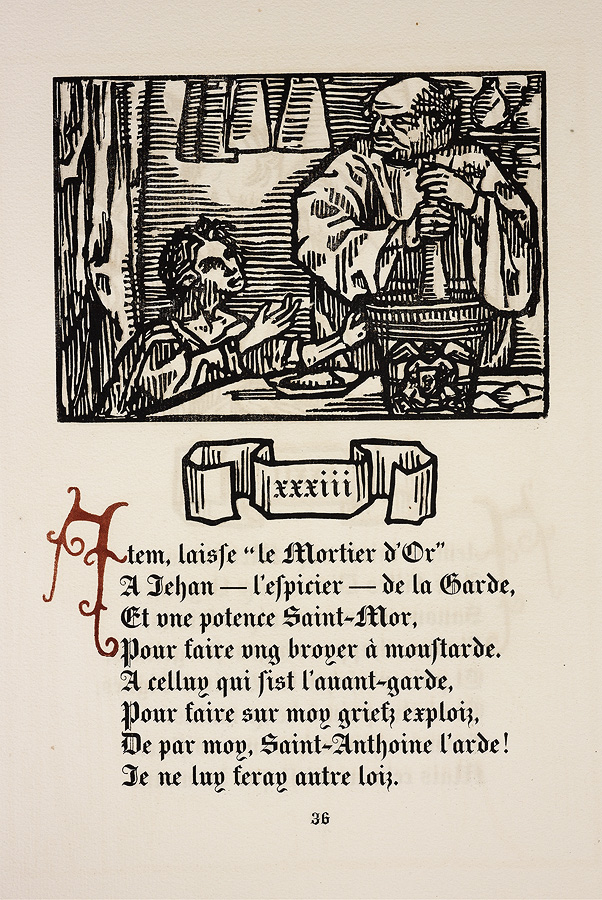 xxxiii
Item, laiſſe “le Mortier d’Or”
A Jehan — l’eſpicier — de la Garde,
Et vne potence Saint-Mor,
Pour faire vng broyer à mouſtarde.
A celluy qui fiſt l’auant-garde,
Pour faire sur moy griefz exploiz,
De par moy, Saint-Anthoine l’arde!
Je ne luy feray autre loiz.
36